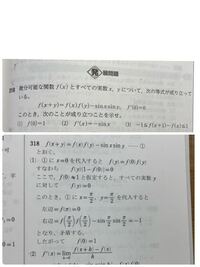 発展問題
318 微分可能な関数 f(x) とすべての実数 x, y について，次の等式が成り立っている。
f(x+y)=f(x)f(y)−sin x sin y, f'(0)=0
このとき，次のことが成り立つことを示せ。
(1) f(0)=1 (2) f'(x)=−sin x (3) −1≦f(x)≦1
318 f(x+y)=f(x)f(y)−sin x sin y ……①
とおく。
(1) ①に x=0 を代入すると f(y)=f(0)f(y)
すなわち
ここで，f(0)≠1 と仮定すると，すべての実数 y
に対して f(y)=0
このとき，①に x=π/2, y=π/2 を代入すると
左辺=f(π)=0
右辺=f(π/2)f(π/2)−sin π/2 sin π/2=−1
となり，矛盾する。
したがって f(0)=1
(2) f'(x)=lim h→0 f(x+h)−f(x)/h